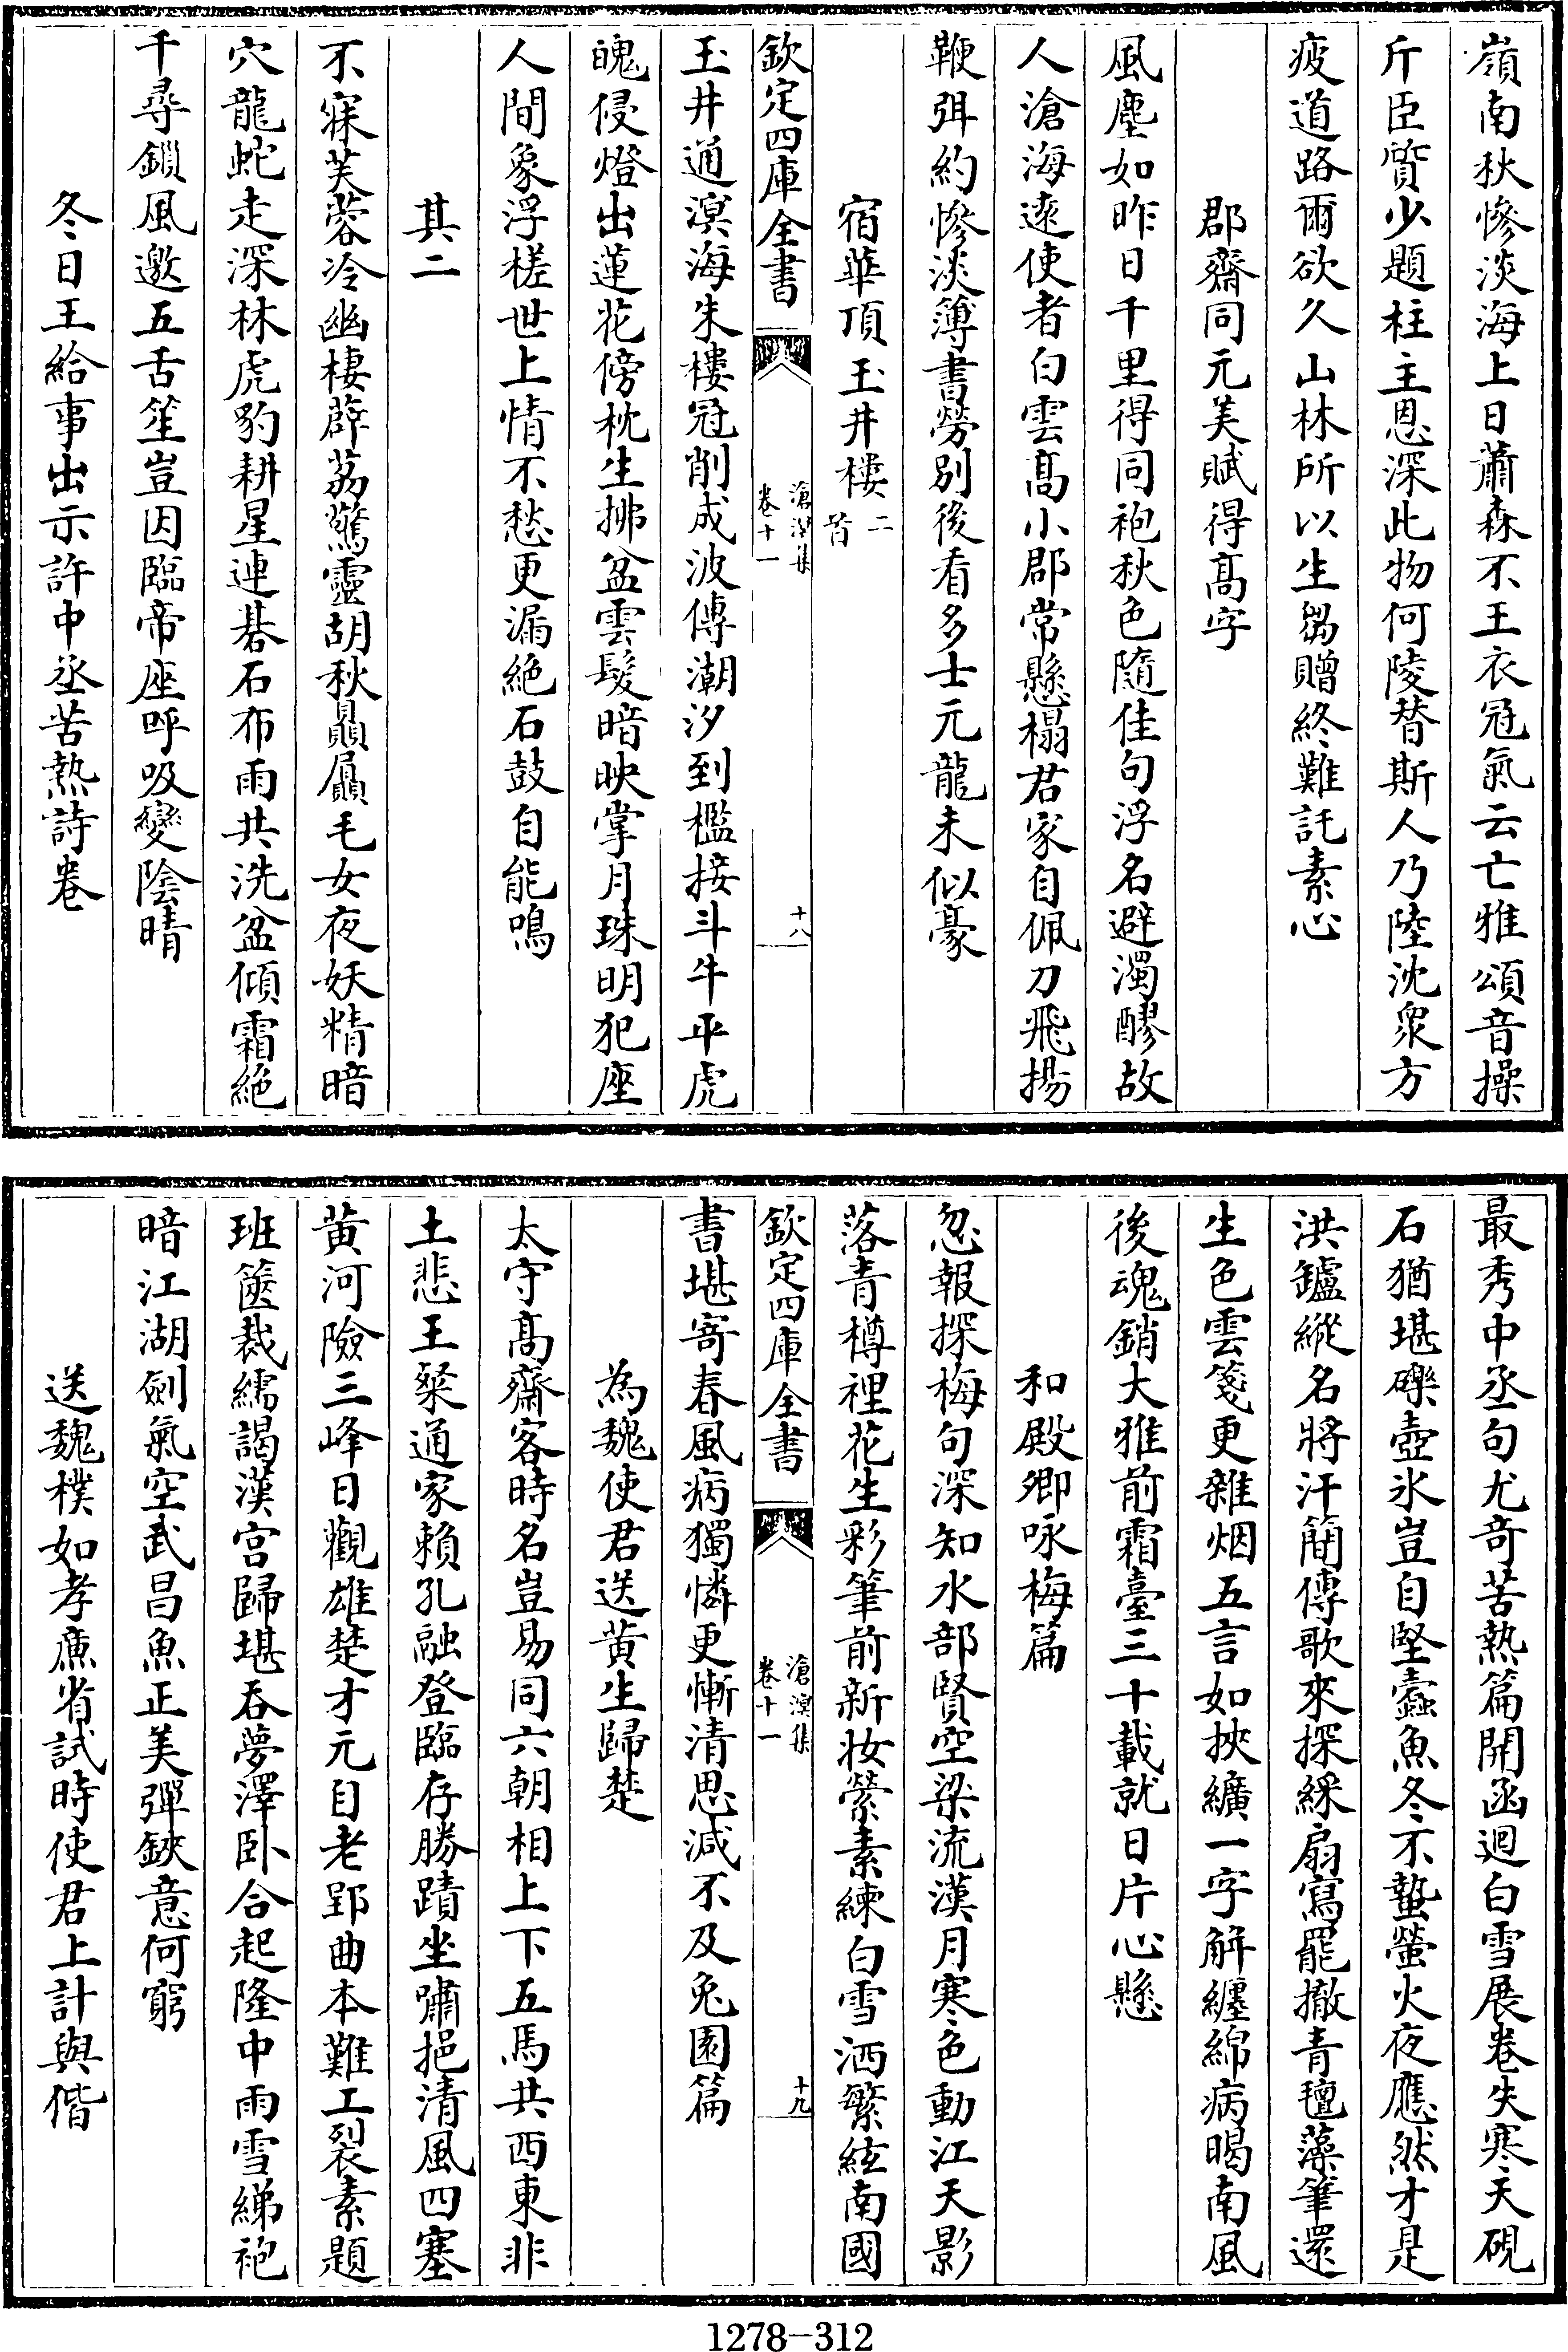 嶺南秋慘淡海上日蕭森不王衣冠氣云亡雅頌音操
斤臣質少題柱主恩深此物何陵替斯人乃陸沈衆方
疲道路爾欲久山林所以生芻贈終難託素心
郡齋同元美賦得髙字
風塵如昨日千里得同袍秋色隨佳句浮名避濁醪故
人滄海逺使者白雲髙小郡常懸榻君家自佩刀飛揚
鞭弭約慘淡簿書勞別後看多士元龍未似豪
宿華頂玉井樓二首
欽定四庫全書
滄溟集
卷十一
十八
玉井通溟海朱樓冠削成波傳潮汐到檻接斗牛平虎
魄侵燈出蓮花傍枕生拂盆雲髮暗映掌月珠明犯座
人間象浮槎世上情不愁更漏絶石鼓自能鳴
其二
不寐芙蓉冷幽棲薜荔驚靈胡秋贔屭毛女夜妖精暗
穴龍蛇走深林虎豹耕星連碁石布雨共洗盆傾霜絶
千尋鎖風邀五舌笙豈因臨帝座呼吸變陰晴
冬日王給事出示許中丞苦熱詩卷
最秀中丞句尤奇苦熱篇開函迴白雪展卷失寒天硯
石猶堪礫壺氷豈自堅蠹魚冬不蟄螢火夜應然才是
洪鑪縱名將汗簡傳歌來探綵扇寫罷撤青氊藻筆還
生色雲箋更雜烟五言如挾纊一字解纏綿病暍南風
後魂銷大雅前霜臺三十載就日片心懸
和殿卿咏梅篇
忽報探梅句深知水部賢空梁流漢月寒色動江天影
落青樽裡花生彩筆前新妝縈素練白雪洒繁絃南國
欽定四庫全書
滄溟集
卷十一
十九
書堪寄春風病獨憐更慚清思減不及兎園篇
為魏使君送黄生歸楚
太守髙齋客時名豈易同六朝相上下五馬共西東非
土悲王粲通家賴孔融登臨存勝蹟坐嘯挹清風四塞
黄河險三峰日觀雄楚才元自老郢曲本難工裂素題
班篋裁繻謁漢宫歸堪吞夢澤卧合起隆中雨雪綈袍
暗江湖劍氣空武昌魚正美彈鋏意何窮
送魏樸如孝廉省試時使君上計與偕
1278-312